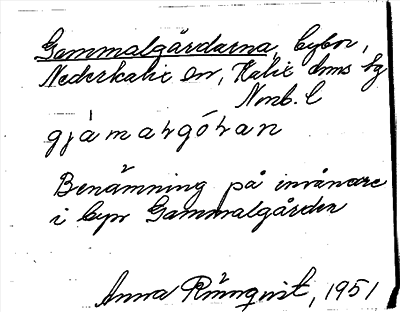 Gammalgårdarna, bybor,
Nederkalix sn, Kalix dms bg
Nonb. l
gjámahgóḥan
Benämning på invånare
i byn Gammalgården
Anna Rönnqvist, 1951